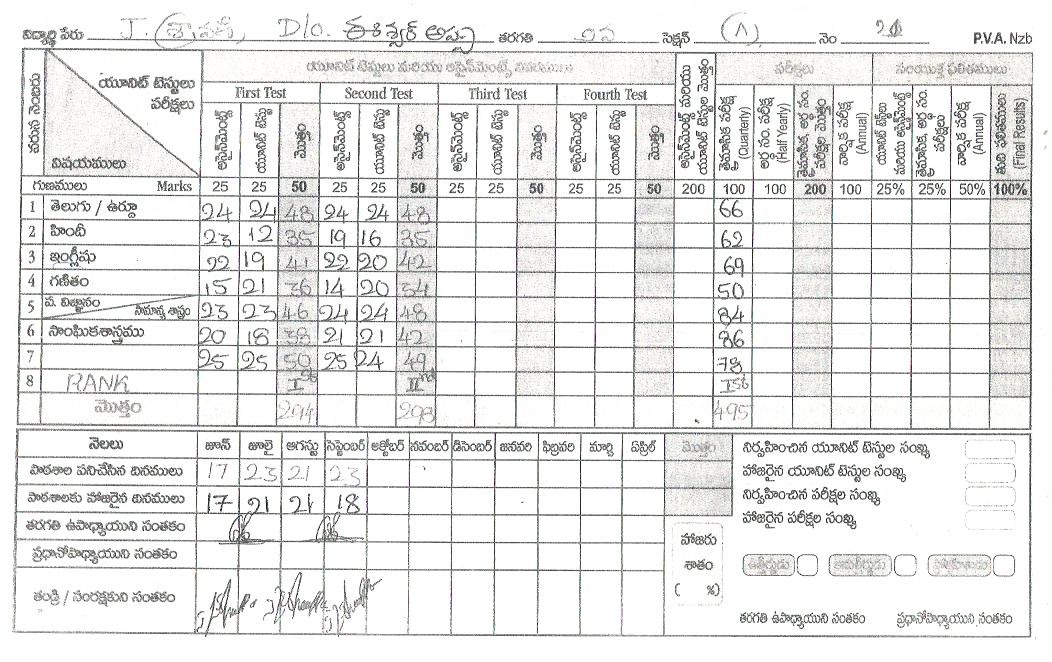 విద్యార్థి పేరు J. శ్రావణి, D/o. ఈశ్వర్ అప్ప తరగతి సెక్షన్ (A) నెం P.V.A. Nzb
వరుస నెంబరు యూనిట్ టెస్టులు పరీక్షలు విషయములు
యూనిట్ టెస్టులు మరియు అసైన్‌మెంట్స్ వివరములు పరీక్షలు సంయుక్త ఫలితములు
First Test Second Test Third Test Fourth Test
అసైన్‌మెంట్ యూనిట్ టెస్టు మొత్తం అసైన్‌మెంట్ యూనిట్ టెస్టు మొత్తం అసైన్‌మెంట్ యూనిట్ టెస్టు మొత్తం అసైన్‌మెంట్ యూనిట్ టెస్టు మొత్తం అసైన్‌మెంట్ మరియు యూనిట్ టెస్టుల మొత్తం త్రైమాసిక పరీక్ష (Quarterly) అర్థ సం. పరీక్ష (Half Yearly) త్రైమాసిక, అర్థ సం. పరీక్షల మొత్తం వార్షిక పరీక్ష (Annual) యూనిట్ టెస్టులు మరియు అసైన్‌మెంట్ త్రైమాసిక అర్థ సం. పరీక్షలు వార్షిక పరీక్ష (Annual) తుది ఫలితములు (Final Results)
గుణములు Marks 25 25 50 25 25 50 25 25 50 25 25 50 200 100 100 200 100 25% 25% 50% 100%
1 తెలుగు / ఉర్దూ 24 24 48 24 24 48 66
2 హిందీ 23 12 35 19 16 35 62
3 ఇంగ్లీషు 22 19 41 22 20 42 69
4 గణితం 15 21 36 14 20 34 50
5 ప. విజ్ఞానం సామాన్య శాస్త్రం 23 23 46 24 24 48 84
6 సాంఘికశాస్త్రము 20 18 38 21 21 42 86
7 25 25 50 25 24 49 78
8 RANK Ist IInd Ist
మొత్తం 294 298 495
నెలలు జూన్ జూలై ఆగస్టు సెప్టెంబర్ అక్టోబర్ నవంబర్ డిసెంబర్ జనవరి ఫిబ్రవరి మార్చి ఏప్రిల్ మొత్తం
పాఠశాల పనిచేసిన దినములు 17 23 21 23
పాఠశాలకు హాజరైన దినములు 17 21 21 18
తరగతి ఉపాధ్యాయుని సంతకం
ప్రధానోపాధ్యాయుని సంతకం
తండ్రి / సంరక్షకుని సంతకం
హాజరు
శాతం
( %)
నిర్వహించిన యూనిట్ టెస్టుల సంఖ్య
హాజరైన యూనిట్ టెస్టుల సంఖ్య
నిర్వహించిన పరీక్షల సంఖ్య
హాజరైన పరీక్షల సంఖ్య
తరగతి ఉపాధ్యాయుని సంతకం ప్రధానోపాధ్యాయుని సంతకం